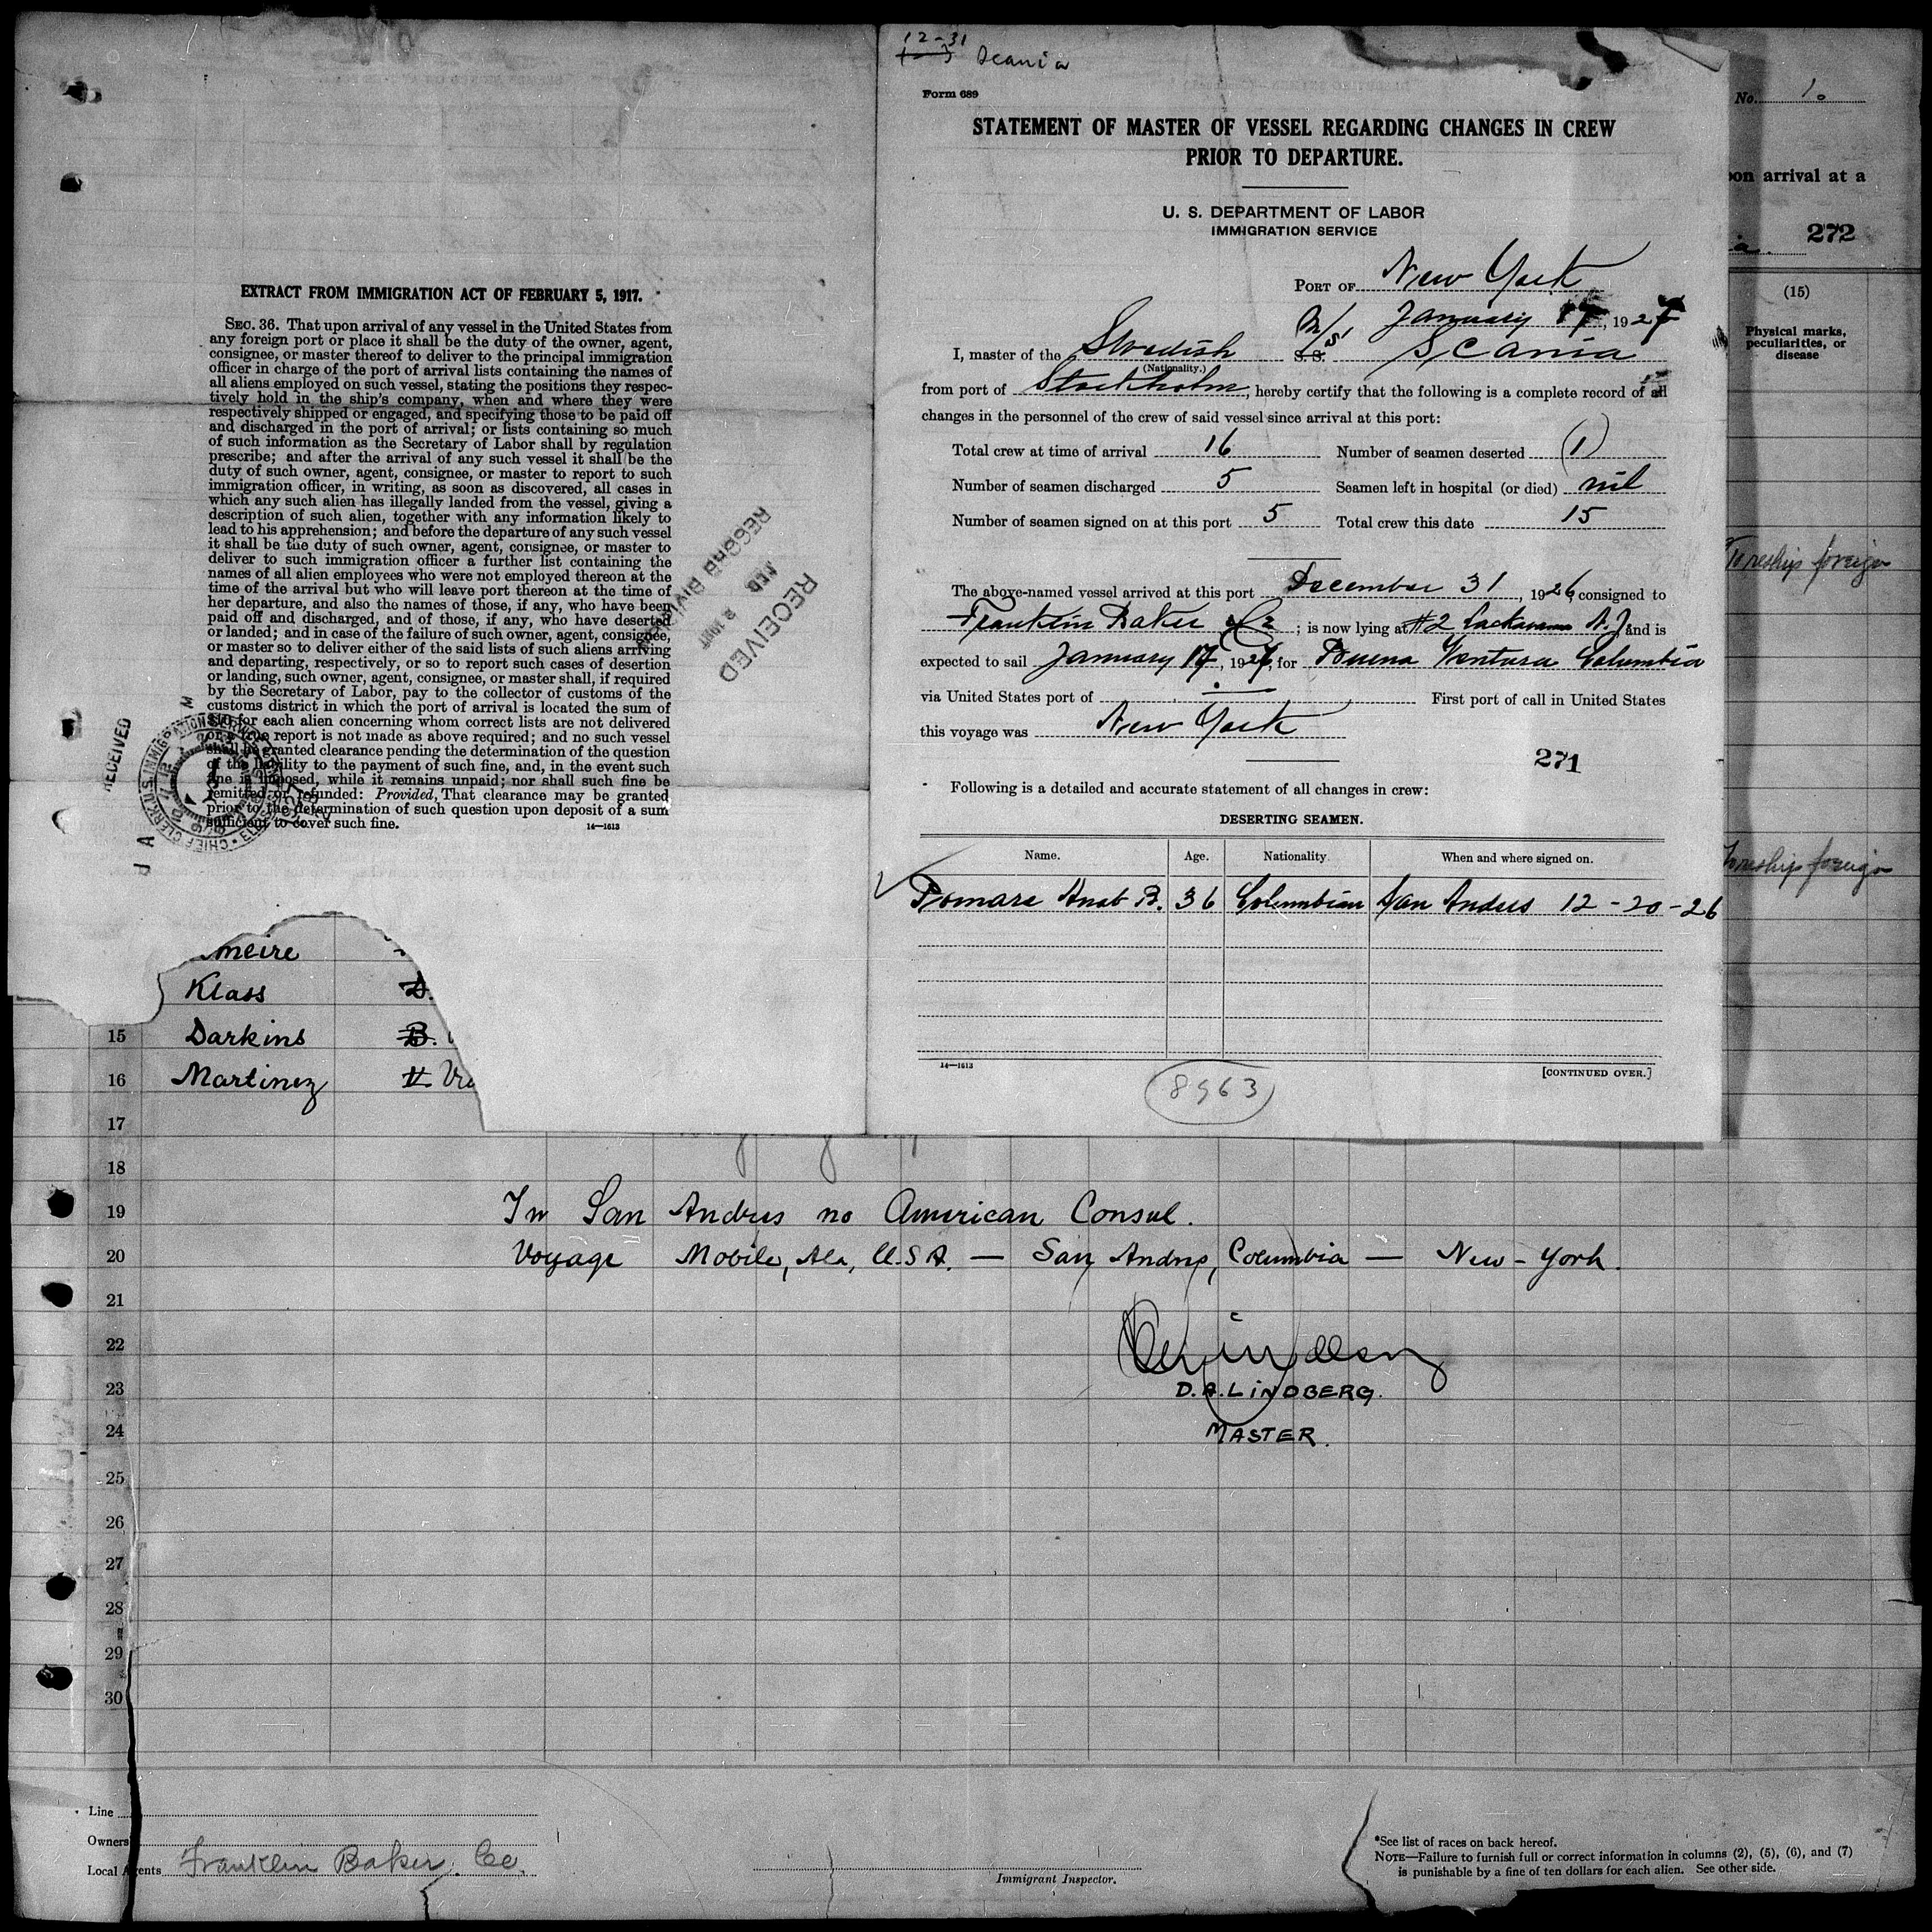 EXTRACT FROM IMMIGRATION ACT OF FEBRUARY 5, 1917.
SEC. 36. That upon arrival of any vessel in the United States from
any foreign port or place it shall be the duty of the owner, agent,
consignee, or master thereof to deliver to the principal immigration
officer in charge of the port of arrival lists containing the names of
all aliens employed on such vessel, stating the positions they respec-
tively hold in the ship's company, when and where they were
respectively shipped or engaged, and specifying those to be paid off
and discharged in the port of arrival; or lists containing so much
of such information as the Secretary of Labor shall by regulation
prescribe; and after the arrival of any such vessel it shall be the
duty of such owner, agent, consignee, or master to report to such
immigration officer, in writing, as soon as discovered, all cases in
which any such alien has illegally landed from the vessel, giving a
description of such alien, together with any information likely to
lead to his apprehension; and before the departure of any such vessel
it shall be the duty of such owner, agent, consignee, or master to
deliver to such immigration officer a further list containing the
names of all alien employees who were not employed thereon at the
time of the arrival but who will leave port thereon at the time of
her departure, and also the names of those, if any, who have been
paid off and discharged, and of those, if any, who have deserted
or landed; and in case of the failure of such owner, agent, consignee,
or master so to deliver either of the said lists of such aliens arriving
and departing, respectively, or so to report such cases of desertion
or landing, such owner, agent, consignee, or master shall, if required
by the Secretary of Labor, pay to the collector of customs of the
customs district in which the port of arrival is located the sum of
$10 for each alien concerning whom correct lists are not delivered
or a true report is not made as above required; and no such vessel
shall be granted clearance pending the determination of the question
of the liability to the payment of such fine, and, in the event such
fine is imposed, while it remains unpaid; nor shall such fine be
remitted or refunded: Provided, That clearance may be granted
prior to the determination of such question upon deposit of a sum
sufficient to cover such fine.
14—1613
RECEIVED
RECORD DIVISION
RECEIVED
12-31
Scania
Form 689
STATEMENT OF MASTER OF VESSEL REGARDING CHANGES IN CREW
PRIOR TO DEPARTURE.
U. S. DEPARTMENT OF LABOR
IMMIGRATION SERVICE
PORT OF New York
January 17, 1927
I, master of the Swedish M/S S.S. Scania
(Nationality.)
from port of Stockholm, hereby certify that the following is a complete record of all
changes in the personnel of the crew of said vessel since arrival at this port:
Total crew at time of arrival 16 Number of seamen deserted (1)
Number of seamen discharged 5 Seamen left in hospital (or died) nil
Number of seamen signed on at this port 5 Total crew this date 15
The above-named vessel arrived at this port December 31, 1926, consigned to
Franklin Baker Co; is now lying at #2 Lackawanna N.J. and is
expected to sail January 17, 1927, for Buena Ventura Columbia
via United States port of First port of call in United States
this voyage was New York
271
Following is a detailed and accurate statement of all changes in crew:
DESERTING SEAMEN.
Name. Age. Nationality. When and where signed on.
Pomare Anat B. 36 Columbian San Andres 12-20-26
14—1613
[CONTINUED OVER.]
8963
No. 1.
on arrival at a
272
(15)
Physical marks,
peculiarities, or
disease
To reship foreign
To reship foreign
meire
Klass D.
15 Darkins B.
16 Martinez V.
17
18
19 In San Andres no American Consul.
20 Voyage Mobile, Ala, U.S.A. — San Andres, Columbia — New-York.
21
22
23 D.A.LINDBERG.
24 MASTER.
25
26
27
28
29
30
Line
Owners
Local Agents Franklin Baker. Co.
Immigrant Inspector.
*See list of races on back hereof.
NOTE—Failure to furnish full or correct information in columns (2), (5), (6), and (7)
is punishable by a fine of ten dollars for each alien. See other side.